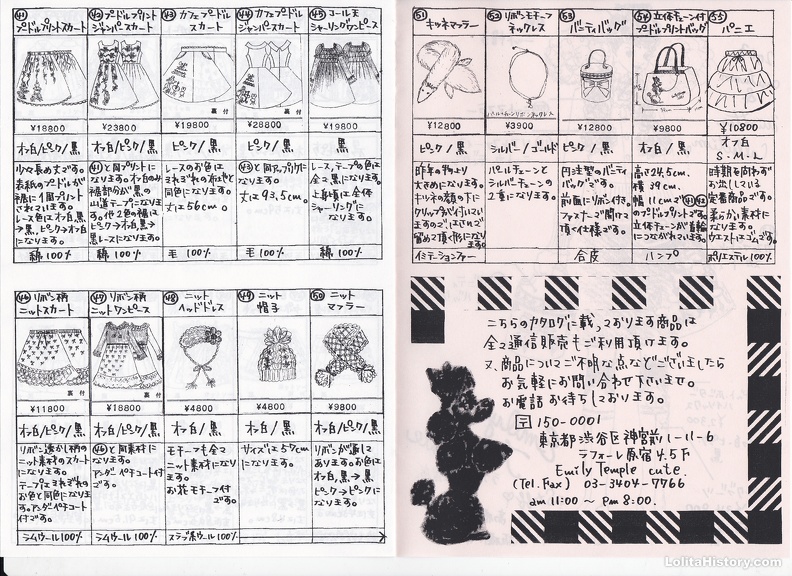 ㊶
プードルプリントスカート
¥18800
オフ白/ピンク/黒
少々長め丈です。
表紙のプードルが
裾に1個プリント
されています。
レース色はオフ白、黒
→黒、ピンク→オフ白
になります。
綿 100%
㊷ プードルプリント
ジャンパースカート
¥23800
オフ白/ピンク/黒
㊶と同プリントに
なります。オフ白のみ
裾部分が黒の
山道テープになりま
す。他2色の裾は
ピンク→オフ白、黒→
黒レースになります。
綿 100%
㊸ カフェプードル
スカート
裏付
¥19800
ピンク/黒
レースのお色は
それぞれの布地と
同色になります。
丈は56cm。
毛 100%
㊹ カフェプードル
ジャンパースカート
裏付
¥28800
ピンク/黒
㊸と同アップリケに
なります。
丈は93.5cm。
毛 100%
㊺ コール天
シャーリングワンピース
¥19800
ピンク/黒
レース、テープの色は
全て黒になります。
上身頃は全体
シャーリングに
なります。
綿 100%
㊻ リボン柄
ニットスカート
裏付
¥11800
オフ白/ピンク/黒
リボン透かし柄の
ニット素材のスカート
になります。
テープはそれぞれの
お色と同色になりま
す。アンダーペチコート
付です。
ラムウール 100%
㊼ リボン柄
ニットワンピース
裏付
¥18800
オフ白/ピンク/黒
㊻と同素材に
なります。
アンダーペチコート付
です。
ラムウール 100%
㊽ ニット
ヘッドドレス
¥4800
オフ白/黒
モチーフも全て
ニット素材になり
ます。
お花モチーフ付
です。
㊾ ニット
帽子
¥4800
オフ白/ピンク/黒
サイズは57cm
になります。
㊿ ニット
マフラー
¥9800
オフ白/ピンク/黒
リボンが通して
あります。お色は
オフ白、黒→黒
ピンク→ピンクに
なります。
51
キツネマフラー
¥12800
ピンク/黒
昨年の物より
大きめになります。
キツネの顔の下に
クリップが付いてい
ますので、はさんで
留めて頂く形になり
ます。
イミテーションファー
52 リボンモチーフ
ネックレス
¥3900
シルバー/ゴールド
パールチェーンと
シルバーチェーンの
2重になります。
53
バニティバッグ
¥12800
ピンク/黒
円柱型のバニティ
バッグです。
前面にリボン付き。
ファスナーで開けて
頂く仕様です。
合皮
54 立体チェーン付
プードルプリントバッグ
¥9800
オフ白/黒
高さ24.5cm、
横 39cm、
幅 11cmで㊶㊷
のプードルプリントです。
立体チェーンが首輪
につながれています。
ハンプ
55
パニエ
¥10800
オフ白
S・M・L
時期を問わず
お出ししている
定番商品です。
柔らかい素材に
なります。
ウエストはゴムです。
ポリエステル100%
こちらのカタログに載っております商品は
全て通信販売もご利用頂けます。
又、商品についてご不明な点などございましたら
お気軽にお問い合わせ下さいませ。
お電話お待ちしております。
〒150-0001
東京都渋谷区神宮前1-11-6
ラフォーレ原宿4.5F
Emily Temple cute.
(Tel.Fax) 03-3404-7766
am 11:00 ~ pm 8:00.
LolitaHistory.com